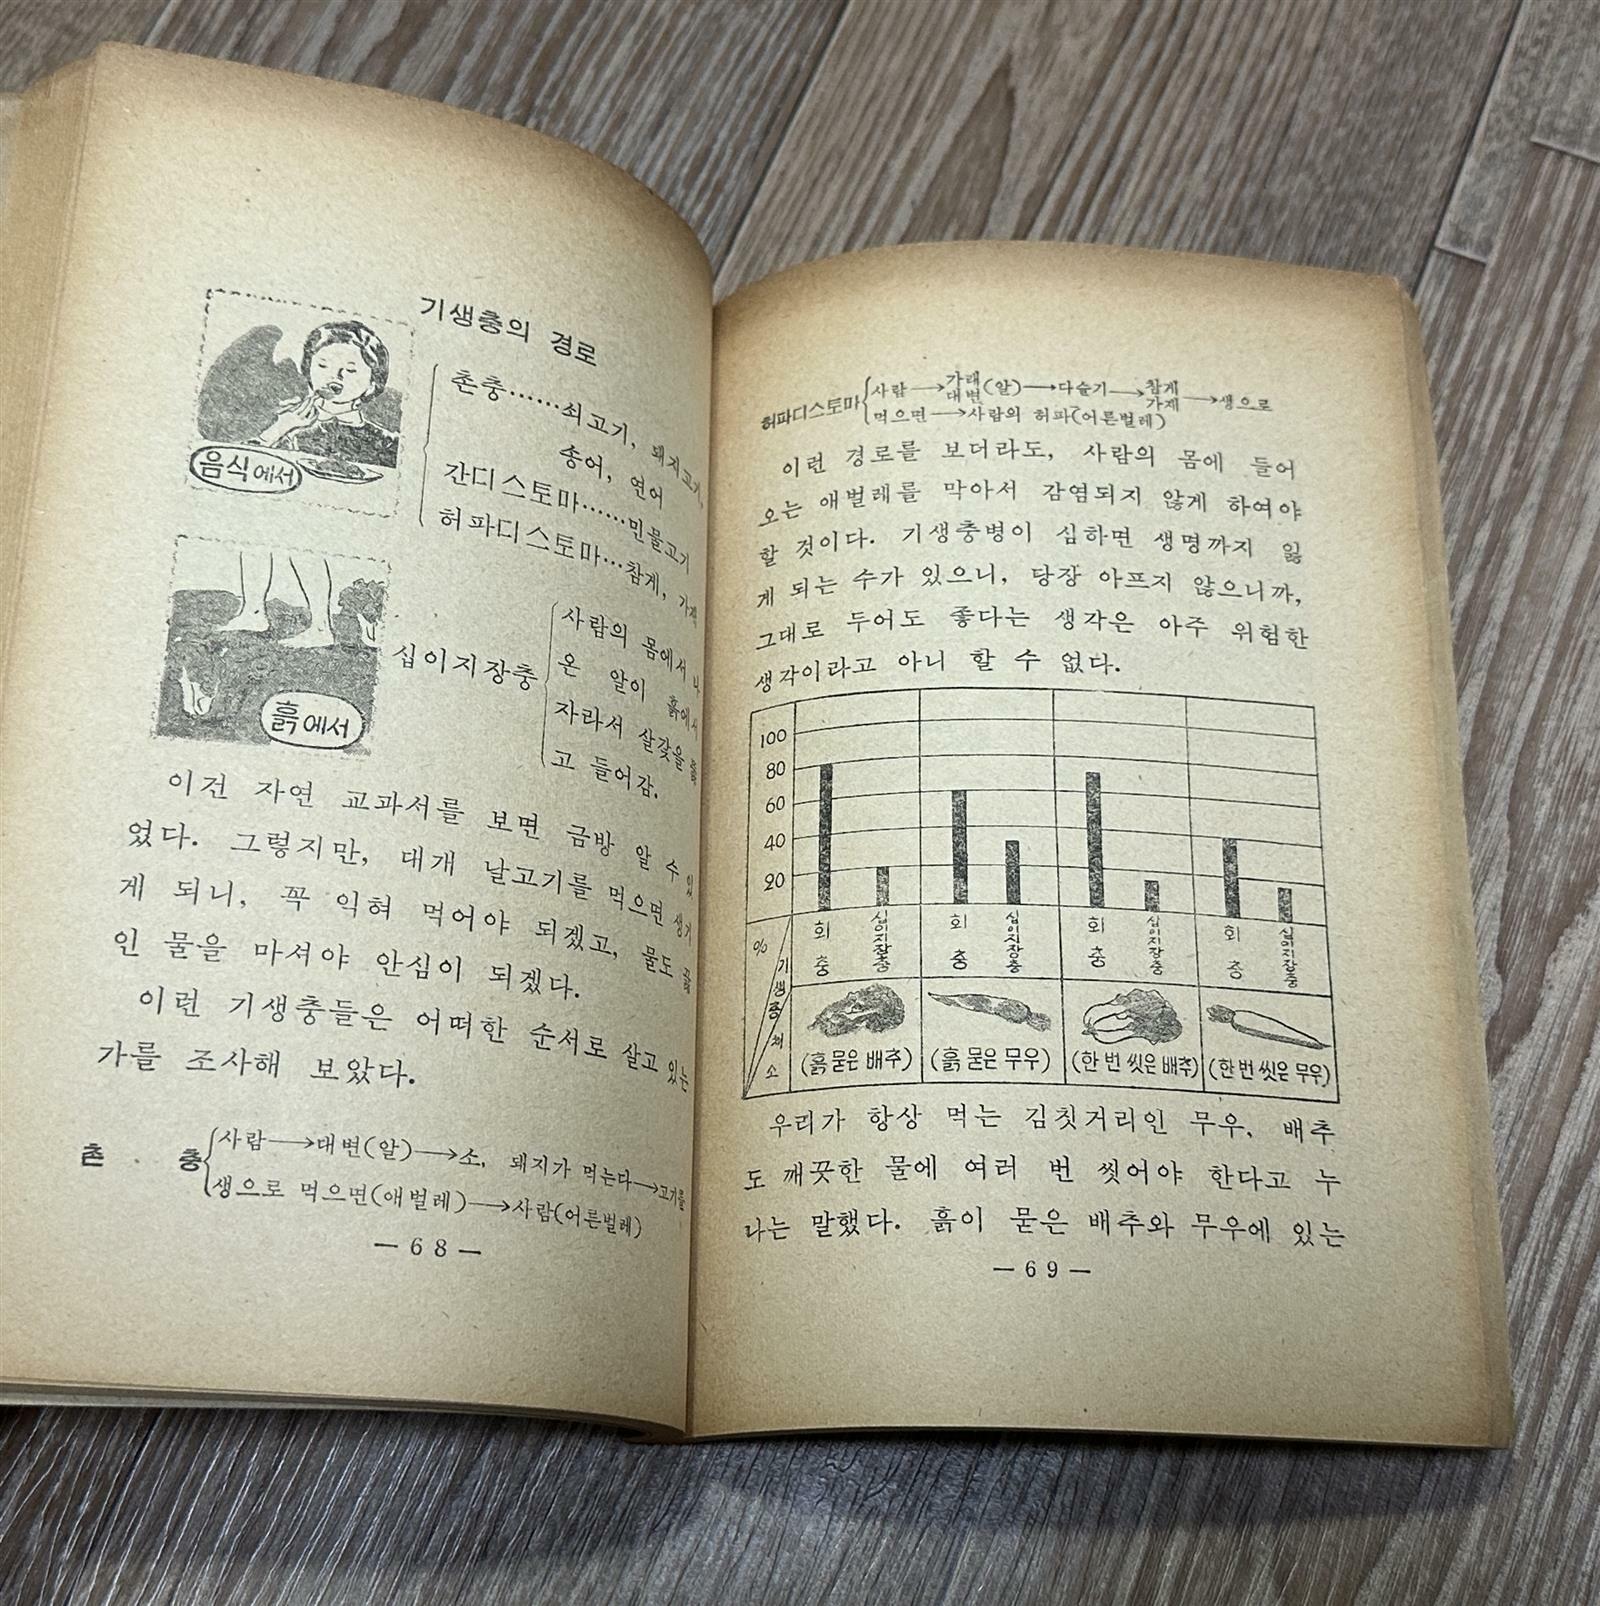 기생충의 경로
음식에서
촌충……쇠고기, 돼지고기,
송어, 연어
간디스토마……민물고기
허파디스토마…참게, 가재
흙에서
십이지장충
사람의 몸에서 나
온 알이 흙에서
자라서 살갗을 뚫
고 들어감.
이건 자연 교과서를 보면 금방 알 수 있
었다. 그렇지만, 대개 날고기를 먹으면 생기
게 되니, 꼭 익혀 먹어야 되겠고, 물도 끓
인 물을 마셔야 안심이 되겠다.
이런 기생충들은 어떠한 순서로 살고 있는
가를 조사해 보았다.
촌 충
사람→대변(알)→소, 돼지가 먹는다→고기를
생으로 먹으면(애벌레)→사람(어른벌레)
—68—
허파디스토마
사람→가래 대변(알)→다슬기→참게 가재→생으로
먹으면→사람의 허파(어른벌레)
이런 경로를 보더라도, 사람의 몸에 들어
오는 애벌레를 막아서 감염되지 않게 하여야
할 것이다. 기생충병이 심하면 생명까지 잃
게 되는 수가 있으니, 당장 아프지 않으니까,
그대로 두어도 좋다는 생각은 아주 위험한
생각이라고 아니 할 수 없다.
100
80
60
40
20
% 기생충 채소
회충 십이지장충 회충 십이지장충 회충 십이지장충 회충 십이지장충
(흙 묻은 배추) (흙 묻은 무우) (한 번 씻은 배추) (한 번 씻은 무우)
우리가 항상 먹는 김칫거리인 무우, 배추
도 깨끗한 물에 여러 번 씻어야 한다고 누
나는 말했다. 흙이 묻은 배추와 무우에 있는
—69—